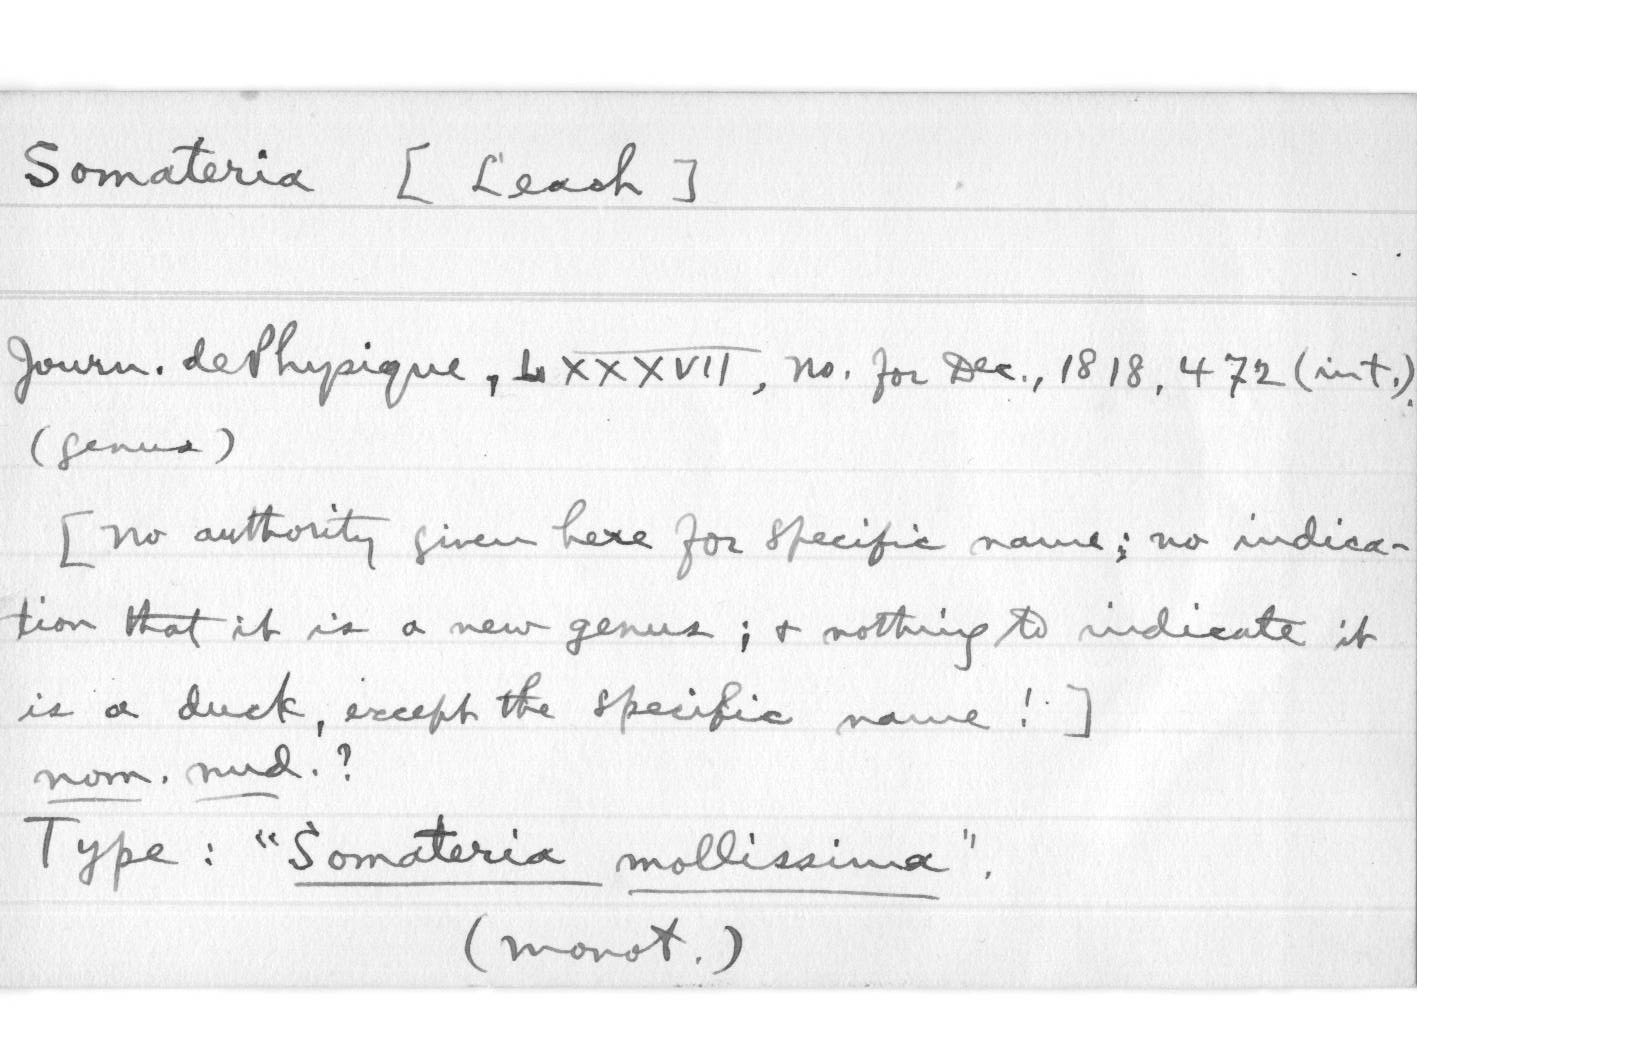 Somateria [Leach]
Journ. de Physique, LXXXVII, no. for Dec., 1818, 472 (int.).
(genus)
[no authority given here for specific name; no indica-
tion that it is a new genus; & nothing to indicate it
is a duck, except the specific name!]
nom. nud.?
Type: "Somateria mollissima".
(monot.)